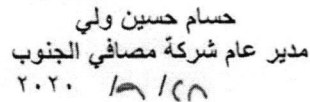 حسام حسين ولي
مدير عام شركة مصافي الجنوب
/ / ٢٠٢٠